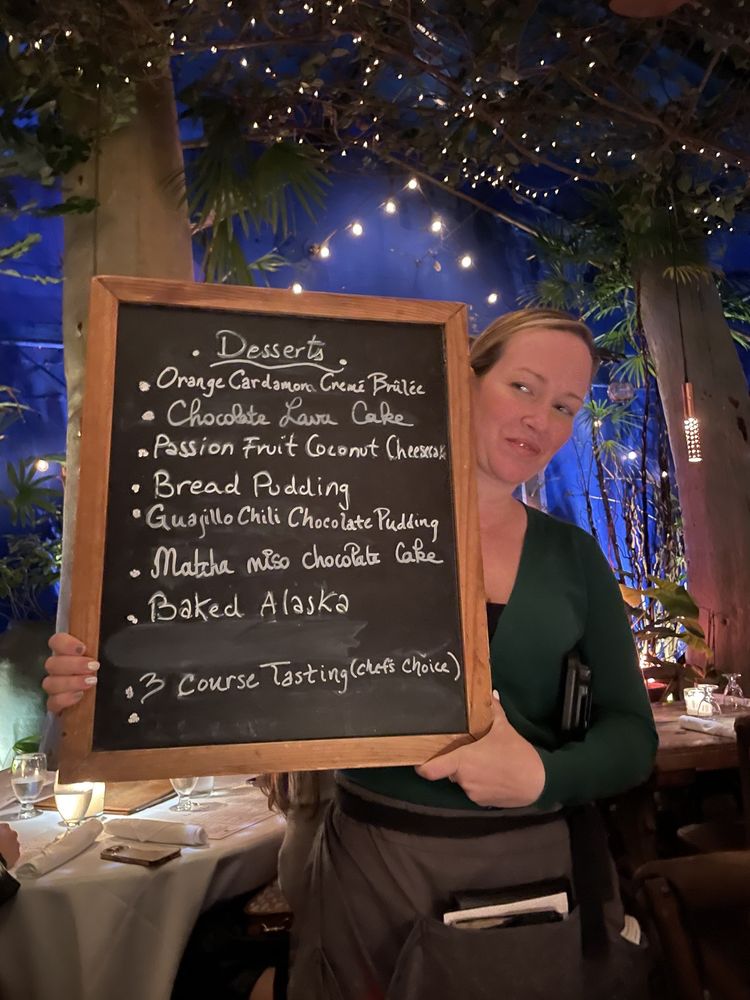 . Desserts .
• Orange Cardamom Cremé Brûlée
• Chocolate Lava Cake
• Passion Fruit Coconut Cheesecak
• Bread Pudding
• Guajillo Chili Chocolate Pudding
• Matcha miso chocolate Cake
• Baked Alaska
• 3 course Tasting (chefs choice)
•